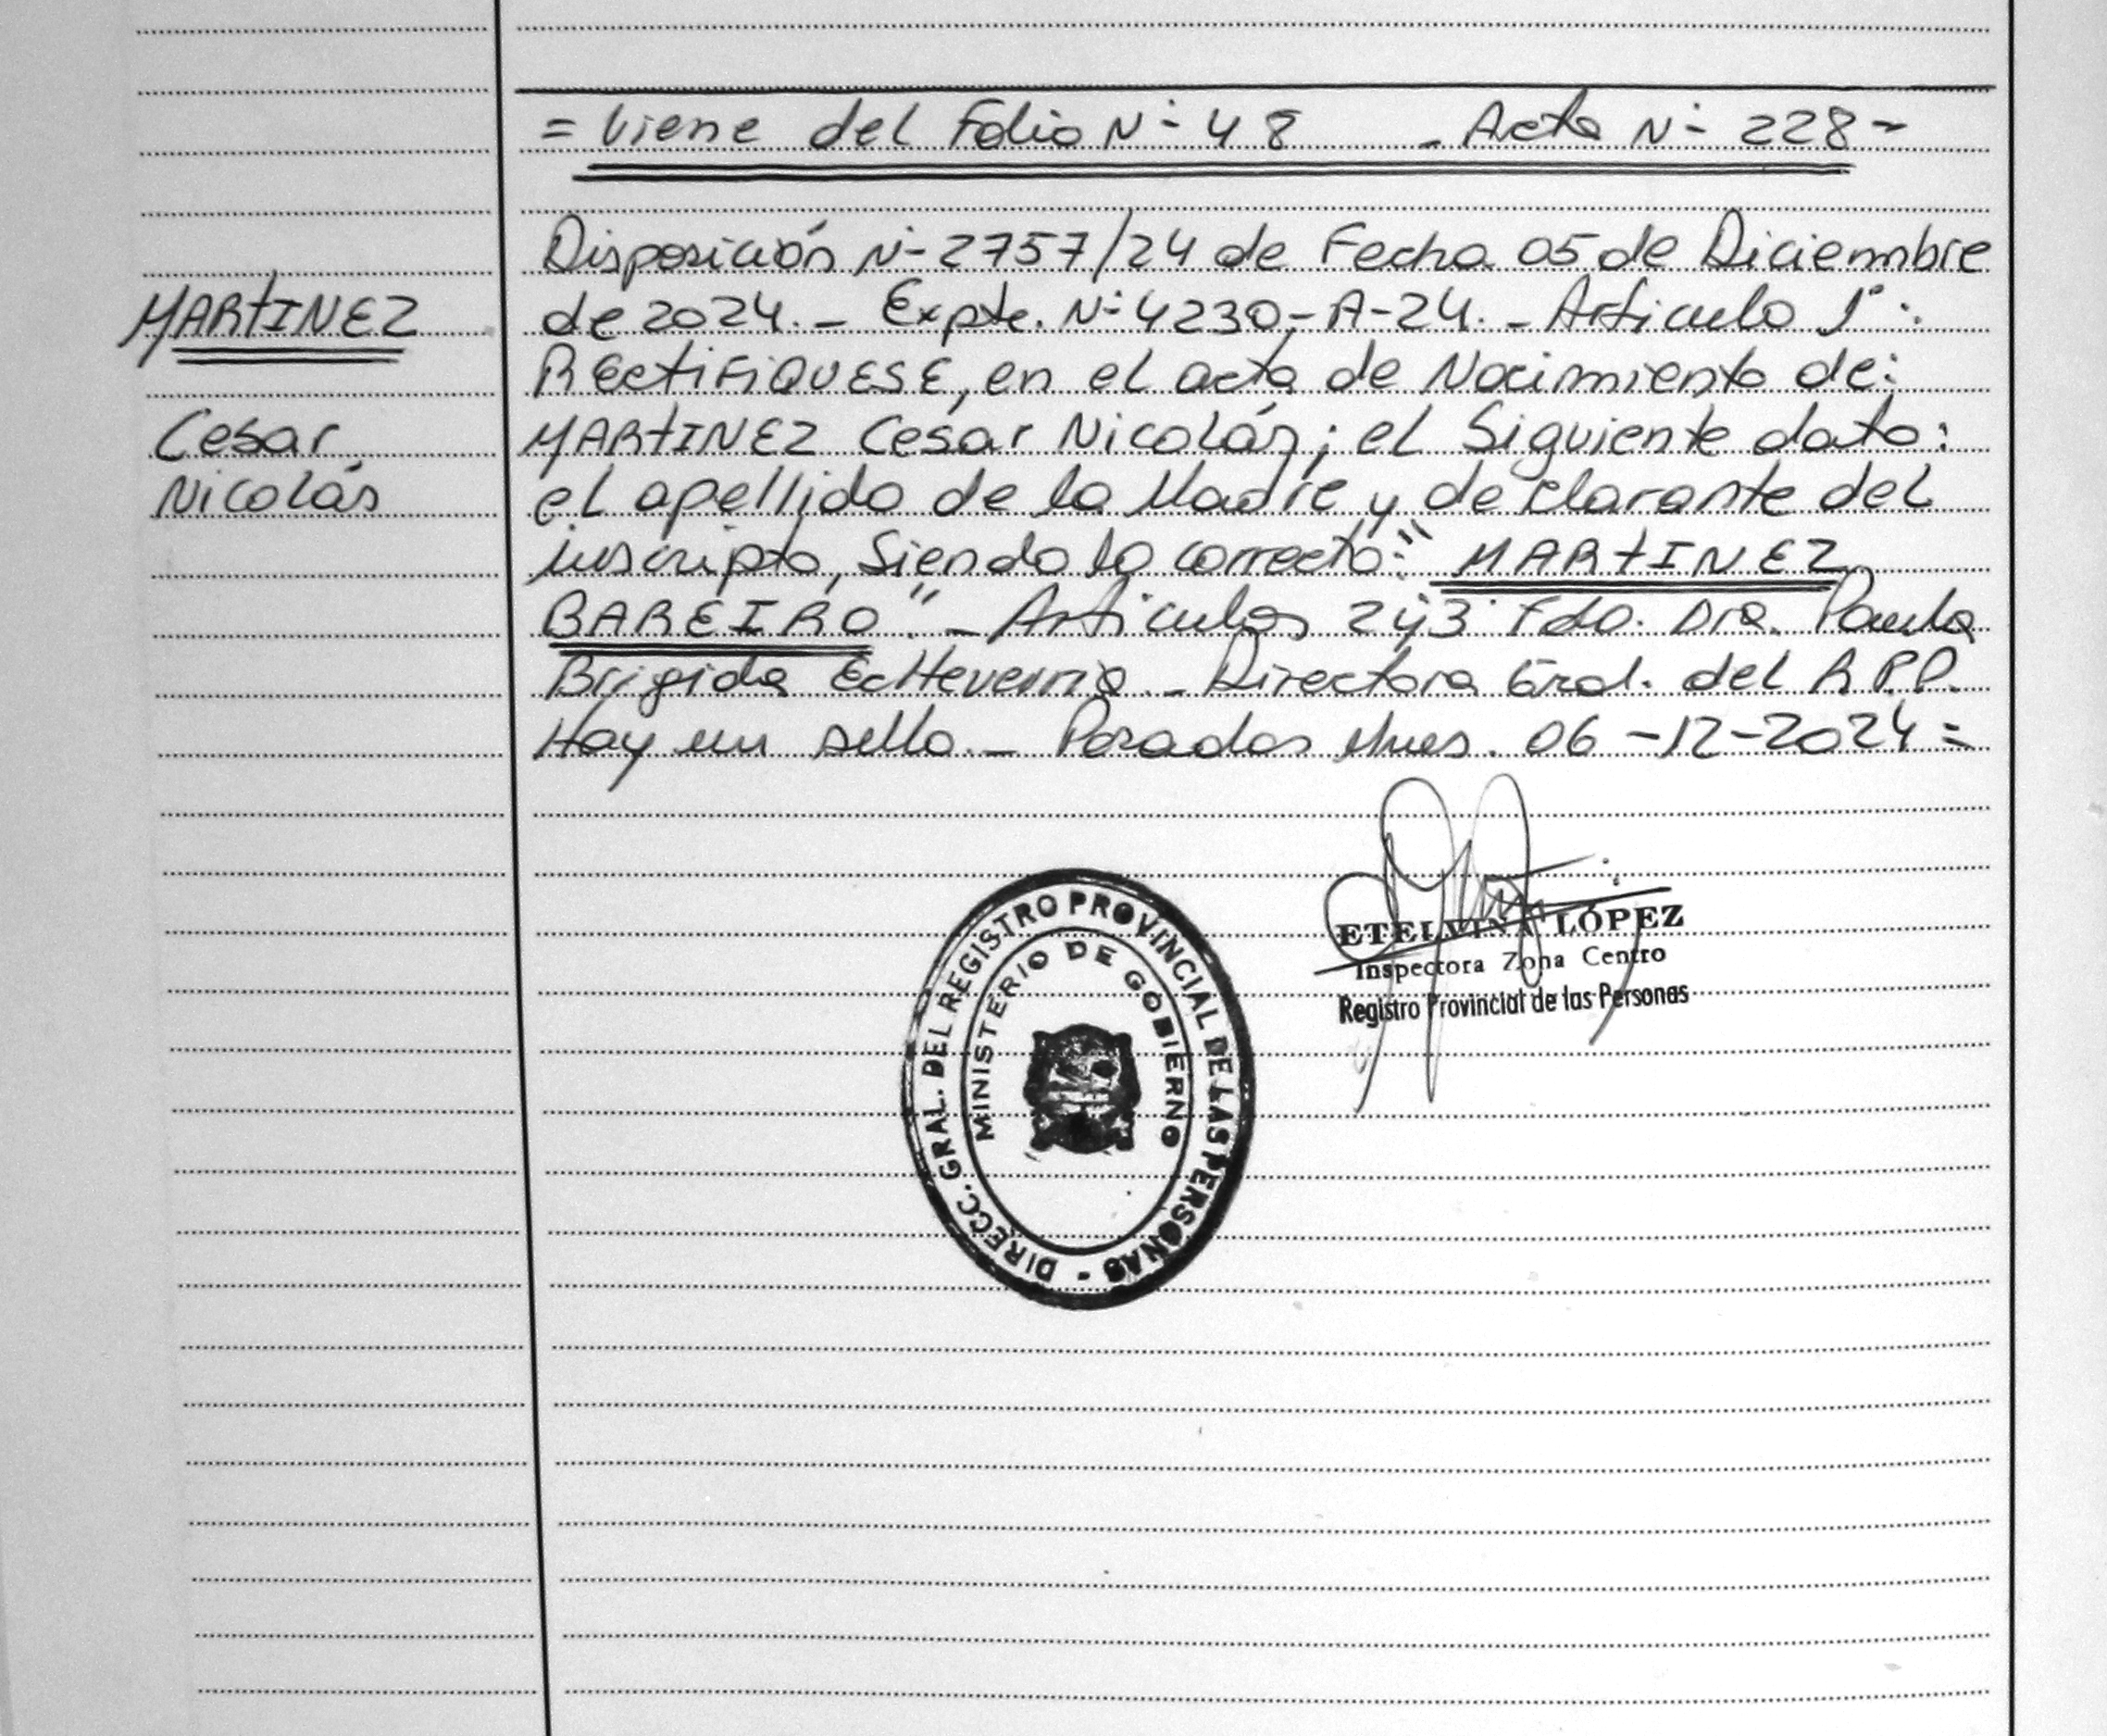 = Viene del Folio N° 48 - Acta N° 228 -
Disposición N° 2757/24 de Fecha 05 de Diciembre
de 2024. - Expte. N° 4230-A-24. - Articulo 1°:
RECtiFiQUESE, en el acta de Nacimiento de:
MARtINEZ Cesar Nicolás; el Siguiente dato:
el apellido de la Madre y declarante del
inscripto, Siendo lo correcto: "MARtINEZ
BAREIRO". - Articulos 2 y 3 Fdo. Dra. Paula
Brigida EcHeverria. - Directora Gral. del R.P.P.
Hay un sello. - Posadas Mnes. 06-12-2024 =
MARtINEZ
Cesar
Nicolás
DIRECC. GRAL. DEL REGISTRO PROVINCIAL DE LAS PERSONAS -
MINISTERIO DE GOBIERNO
ETELVINA LÓPEZ
Inspectora Zona Centro
Registro Provincial de las Personas